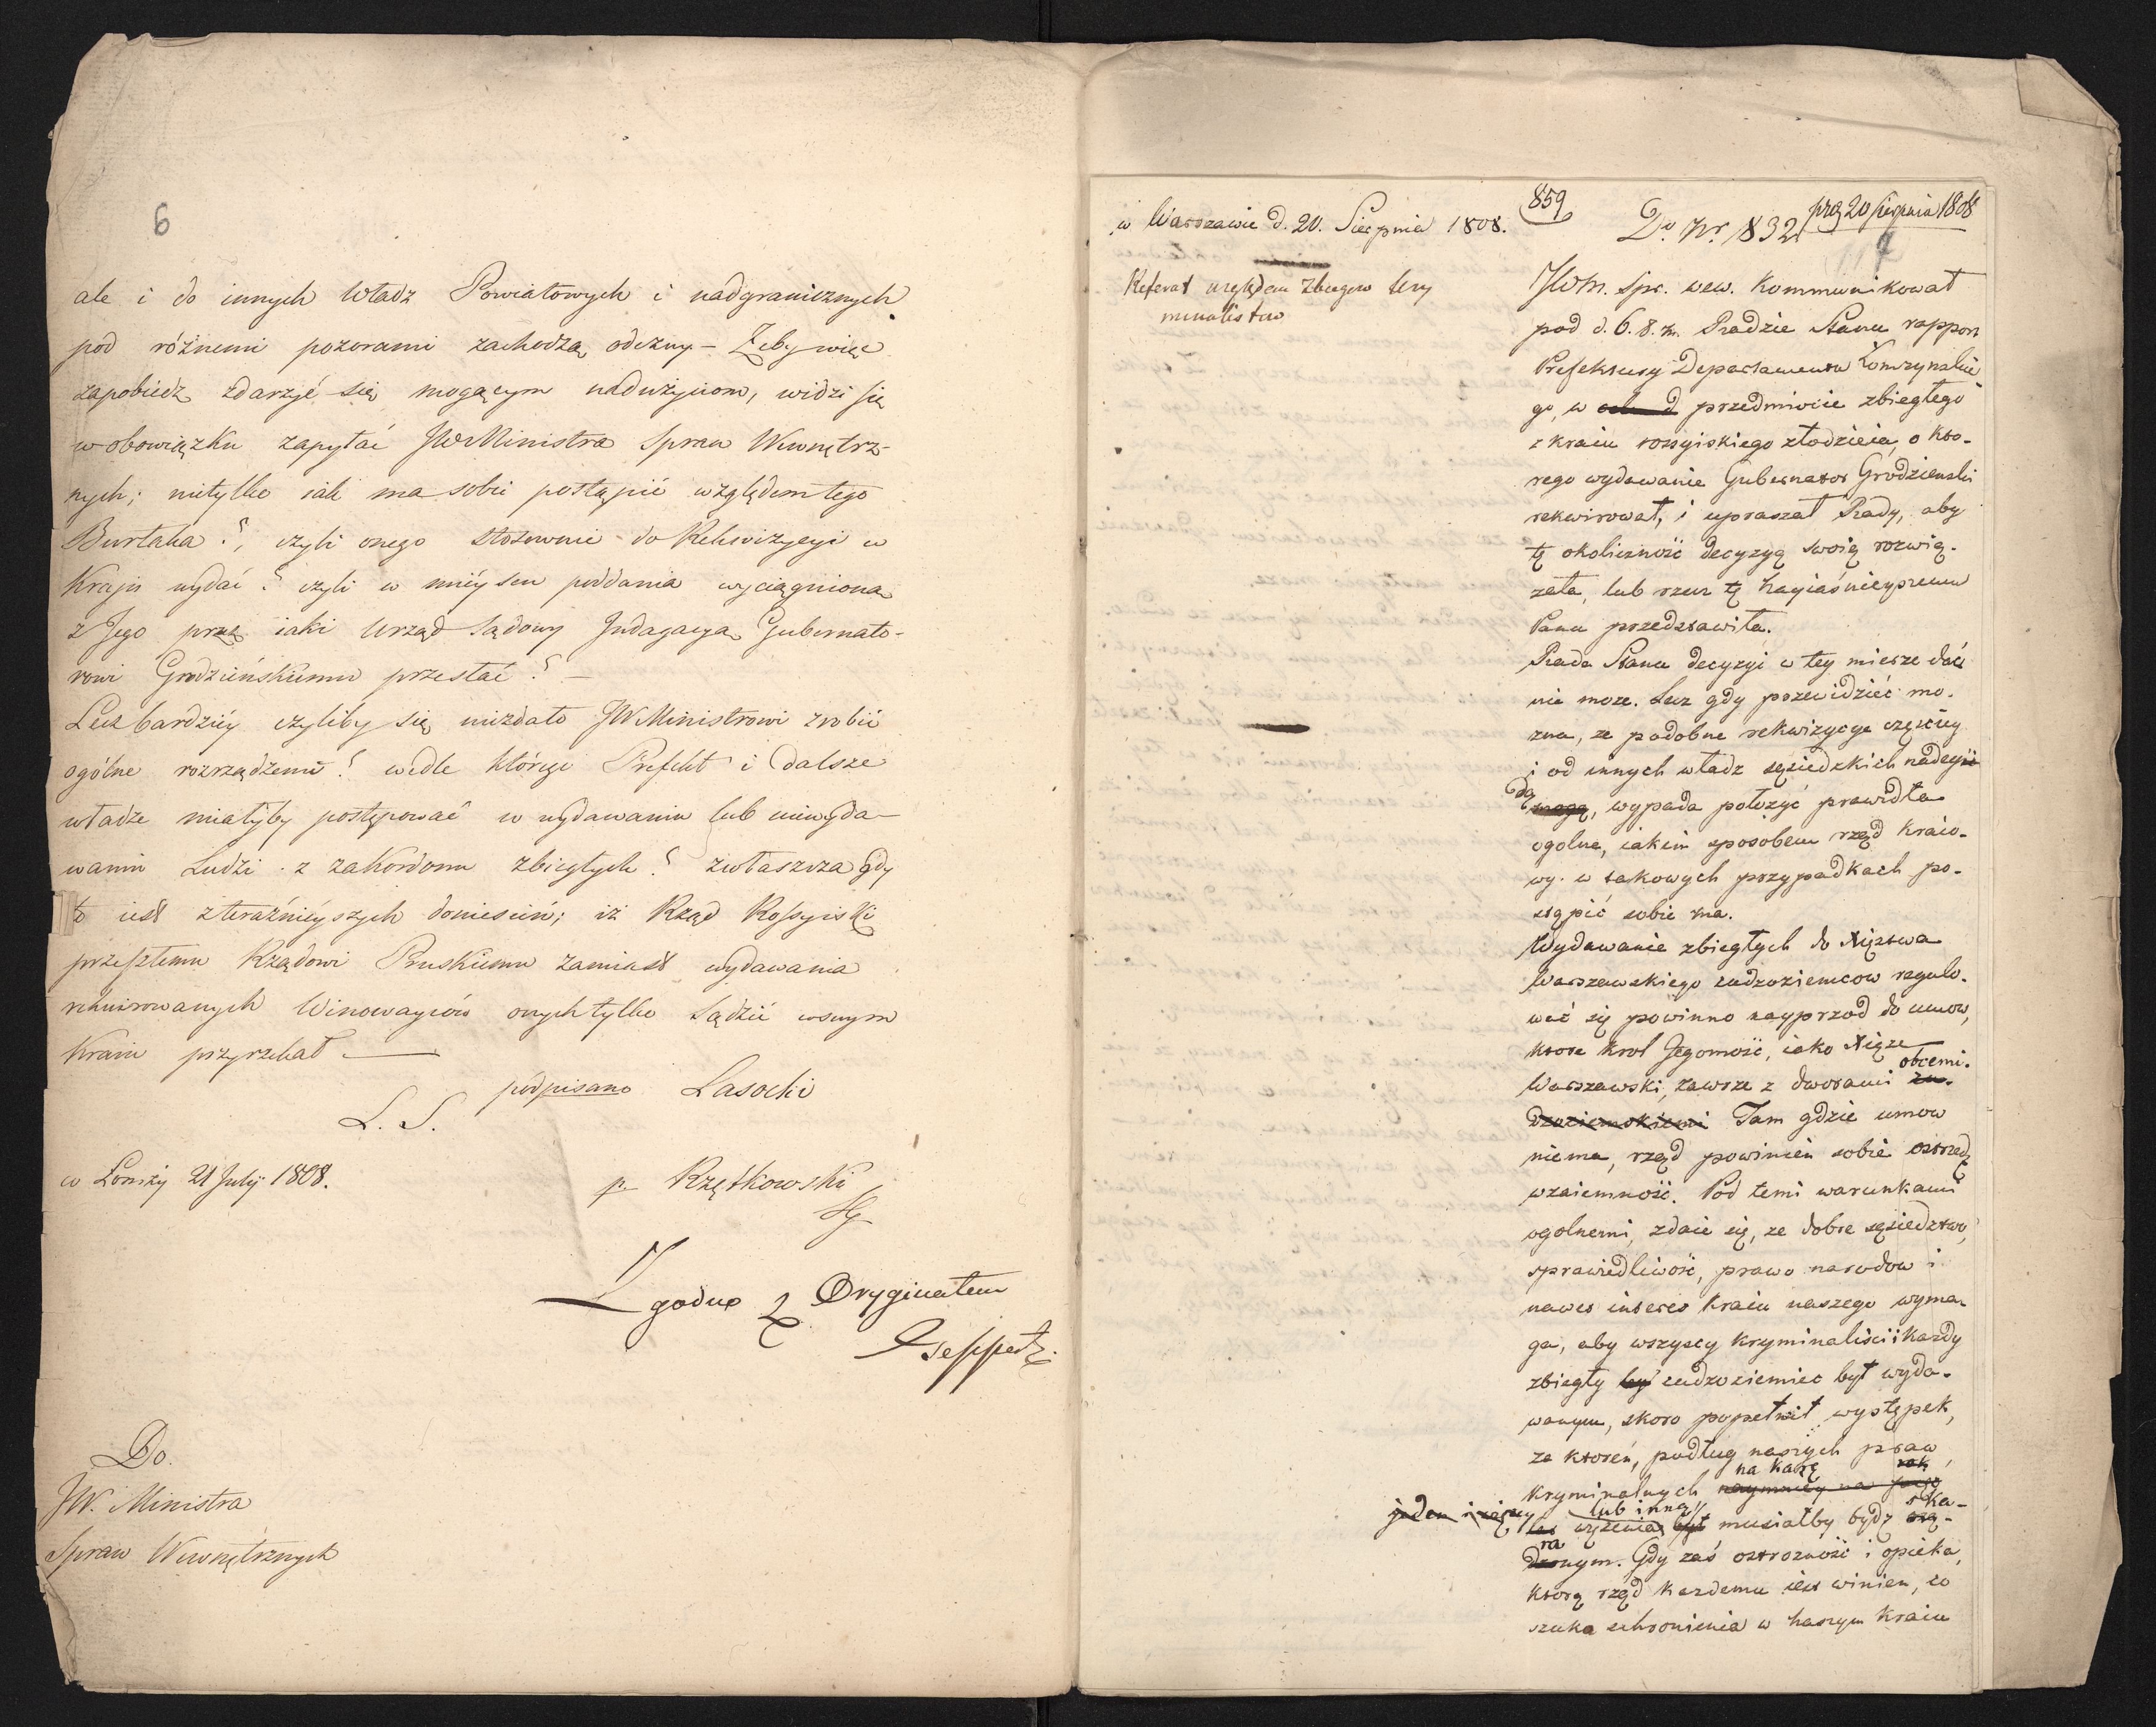 6
ale i do innych Władz Powiatowych i nadgranicznych
pod różnemi pozorami zachodzą odezwy – Żeby więc
zapobiedz zdarzyć się mogącym nadużyciom, widzi się
w obowiązku zapytać JW Ministra Spraw Wewnętrz-
nych; nietylko iak ma sobie postąpić względem tego
Burtaka?, czyli onego stosownie do Rekwizycyi w
Kraju wydać? czyli w mieyscu poddania wyciągniona
z Jego przez iaki Urząd Sądowy Indagacya Gubernato-
rowi Grodzieńskiemu przesłać? –
Lecz bardziey czyliby się niezdało JW Ministrowi zrobić
ogólne rozrządzenie? wedle którego Prefekt i dalsze
władze miałyby postępować w wydawaniu lub niewyda-
waniu Ludzi z zakordonu zbiegłych? zwłaszcza gdy
to iest z teraźnieyszych doniesień; iż Rząd Rossyiski
przeszłemu Rządowi Pruskiemu zamiast wydawania
rekwirowanych Winowayców onych tylko Sądzić w swym
Kraiu przyrzekał —
podpisano Lasocki
L. S.
w Łomży 21 July 1808.
p. Rzętkowski
Sg
Zgodno z Oryginałem
Do.
JW. Ministra
Spraw Wewnętrznych
w Warszawie d. 20. Sierpnia 1808.
859
Do Nr. 832. prez 20 sierpnia 1808
Referat względem Zbiegow kry
minalistow
JWM. Spr. wew. Kommunikował
pod d. 6. 8. m. Radzie Stanu rapport
Prefektury Departamentu Łomzynskie
go, w przedmiocie zbiegłego
z kraiu rossyiskiego złodzieia, o kto-
rego wydawanie Gubernator Grodzienski
rekwirował, i upraszał Rady, aby
tę okoliczność decyzyą swoią rozwią-
zała, lub rzecz tę Nayiaśnieyszemu
Panu przedstawiła.
Rada Stanu decyzyi w tey mierze dać
nie moze. Lecz gdy przewidzieć mo-
zna, ze podobne rekwizycye częściey
i od innych władz sąsiedzkich nadeyść
dą mogą, wypada położyć prawidła
ogolne, iakim sposobem rząd kraio-
wy w takowych przypadkach po-
stąpić sobie ma.
Wydawanie zbiegłych do Xięstwa
Warszawskiego cudzoziemcow regulo-
wać się powinno nayprzod do umow,
ktore Krol Jegomość, iako Xiąze
Warszawski, zawrze z dworami obcemi. cu-
dzoziemskiemi Tam gdzie umow
niema, rząd powinien sobie ostrzedz
wzaiemność. Pod temi warunkami
ogolnemi, zdaie się, ze dobre sąsiedztwo,
sprawiedliwość, prawo narodow i
nawet interes kraiu naszego wyma-
ga, aby wszyscy kryminaliści i kazdy
zbiegły był cudzoziemiec był wyda-
wanym, skoro popełnił występek,
za ktoren, podług naszych praw,
kryminalnych na karę naymniey na
jeden i więcey lub inną
więzienia był musiałby bydź ska-
ra
dzonym. Gdy zaś ostrożność i opieka,
ktorą rząd kazdemu iest winien, co
szuka schronienia w naszym kraiu